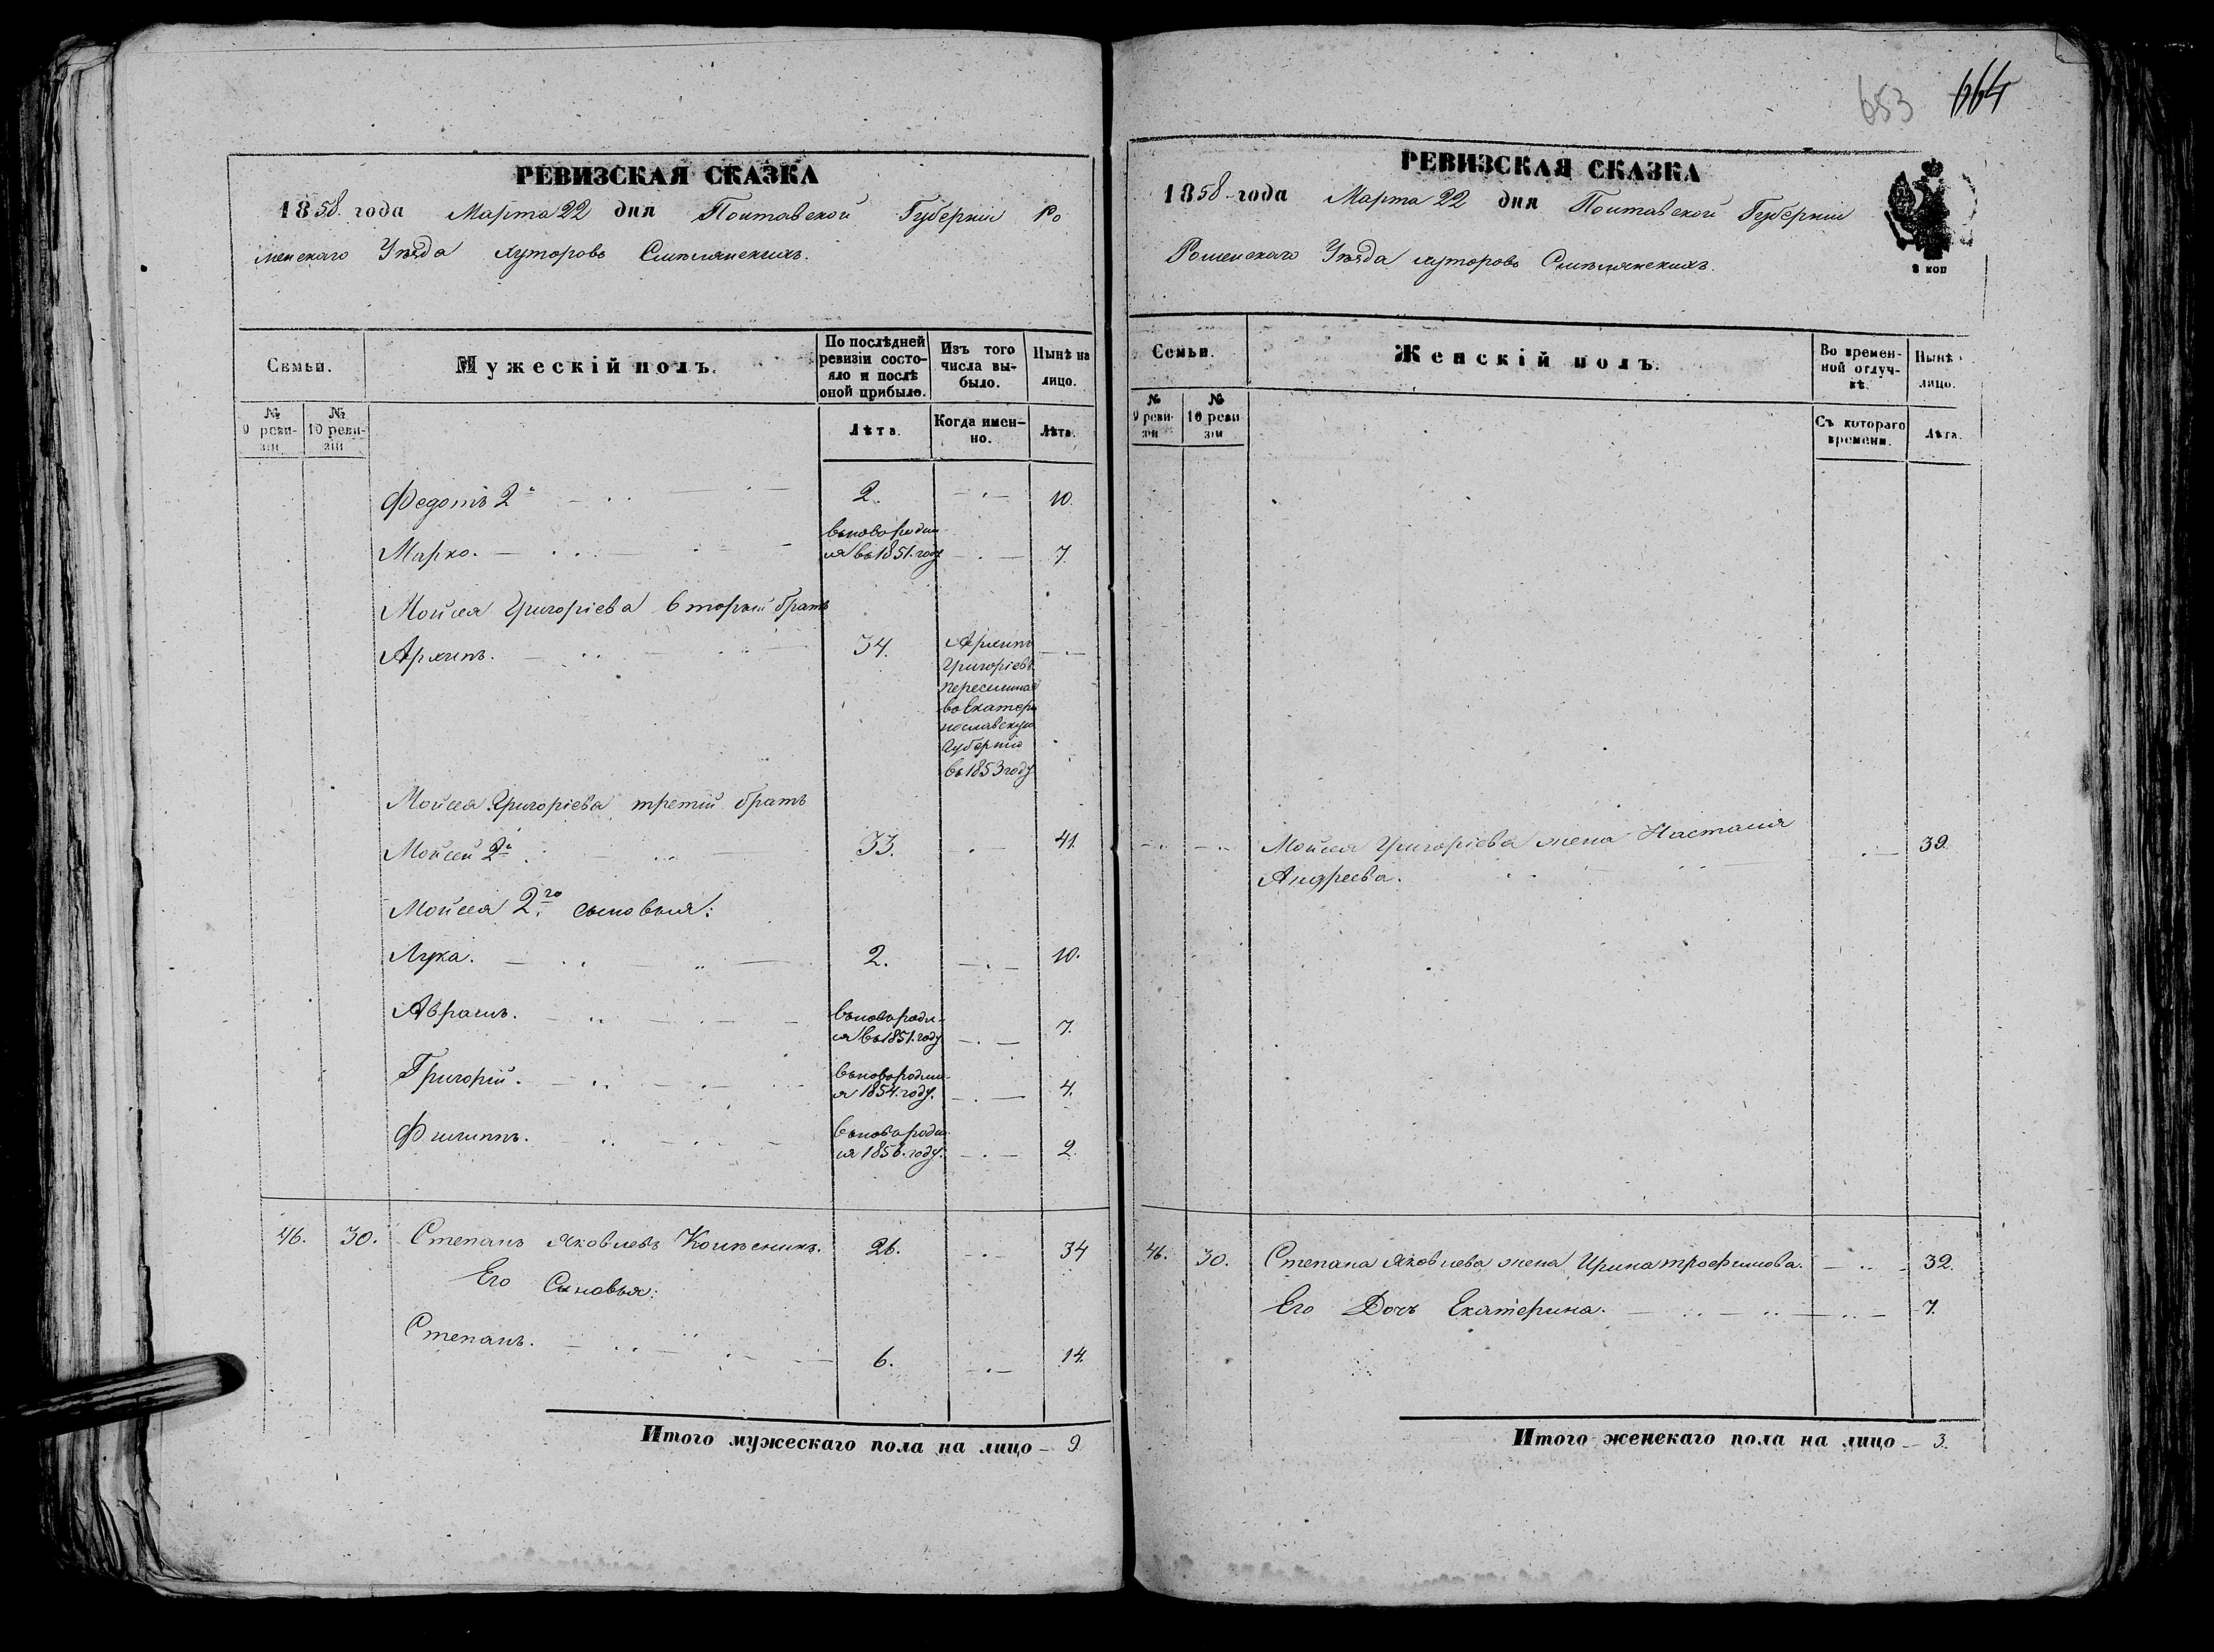 653 664
РЕВИЗСКАЯ СКАЗКА
1858. года Марта 22 дня Полтавской Губерніи Ро
менскаго Уѣзда хуторовъ Смѣлянскихъ.
Семьи.
Мужескій полъ.
По послѣдней ревизіи состояло и послѣ оной прибыло.
Изъ того числа выбыло.
Нынѣ на лицо.
№ 9 ревизіи
№ 10 ревизіи
Лѣта.
Когда именно.
Лѣта.
Федотъ 2й 2. 10.
Марко. вьновородил
ся вь 1851. году 7.
Мойсея Григоріева вторый братъ
Архипъ. 34. Архипъ
Григоріевъ
пересилился
во Екатери
нославскую
Губернію
вь 1853 году
Мойсея Григоріева третій братъ
Мойсей 2й 33. 41.
Мойсея 2го сыновья:
Лука. 2. 10.
Аврамъ. вьновороди-
ся вь 1851. году 7.
Григорій. вьновородил-
ся 1854. году. 4.
Филиппъ. вьновородил-
ся 1856. году. 2.
46. 30. Степанъ Яковлевъ 26. 34
Его Сыновья:
Степанъ. 6. 14.
Итого мужескаго пола на лицо 9.
РЕВИЗСКАЯ СКАЗКА
1858 года Марта 22 дня Полтавской Губерніи
Роменскаго Уѣзда хуторовъ Смѣлянскихъ.
2 коп
Семьи.
Женскій полъ.
Во временной отлучкѣ.
Нынѣ лицо.
№ 9 ревизіи
№ 10 ревизіи
Съ котораго времени.
Лѣта.
Мойсея Григоріева жена Настасия 39.
Андреева.
46. 30. Степана Яковлева жена Ирина трофимова. 32.
Его Дочь Екатерина. 7.
Итого женскаго пола на лицо 3.